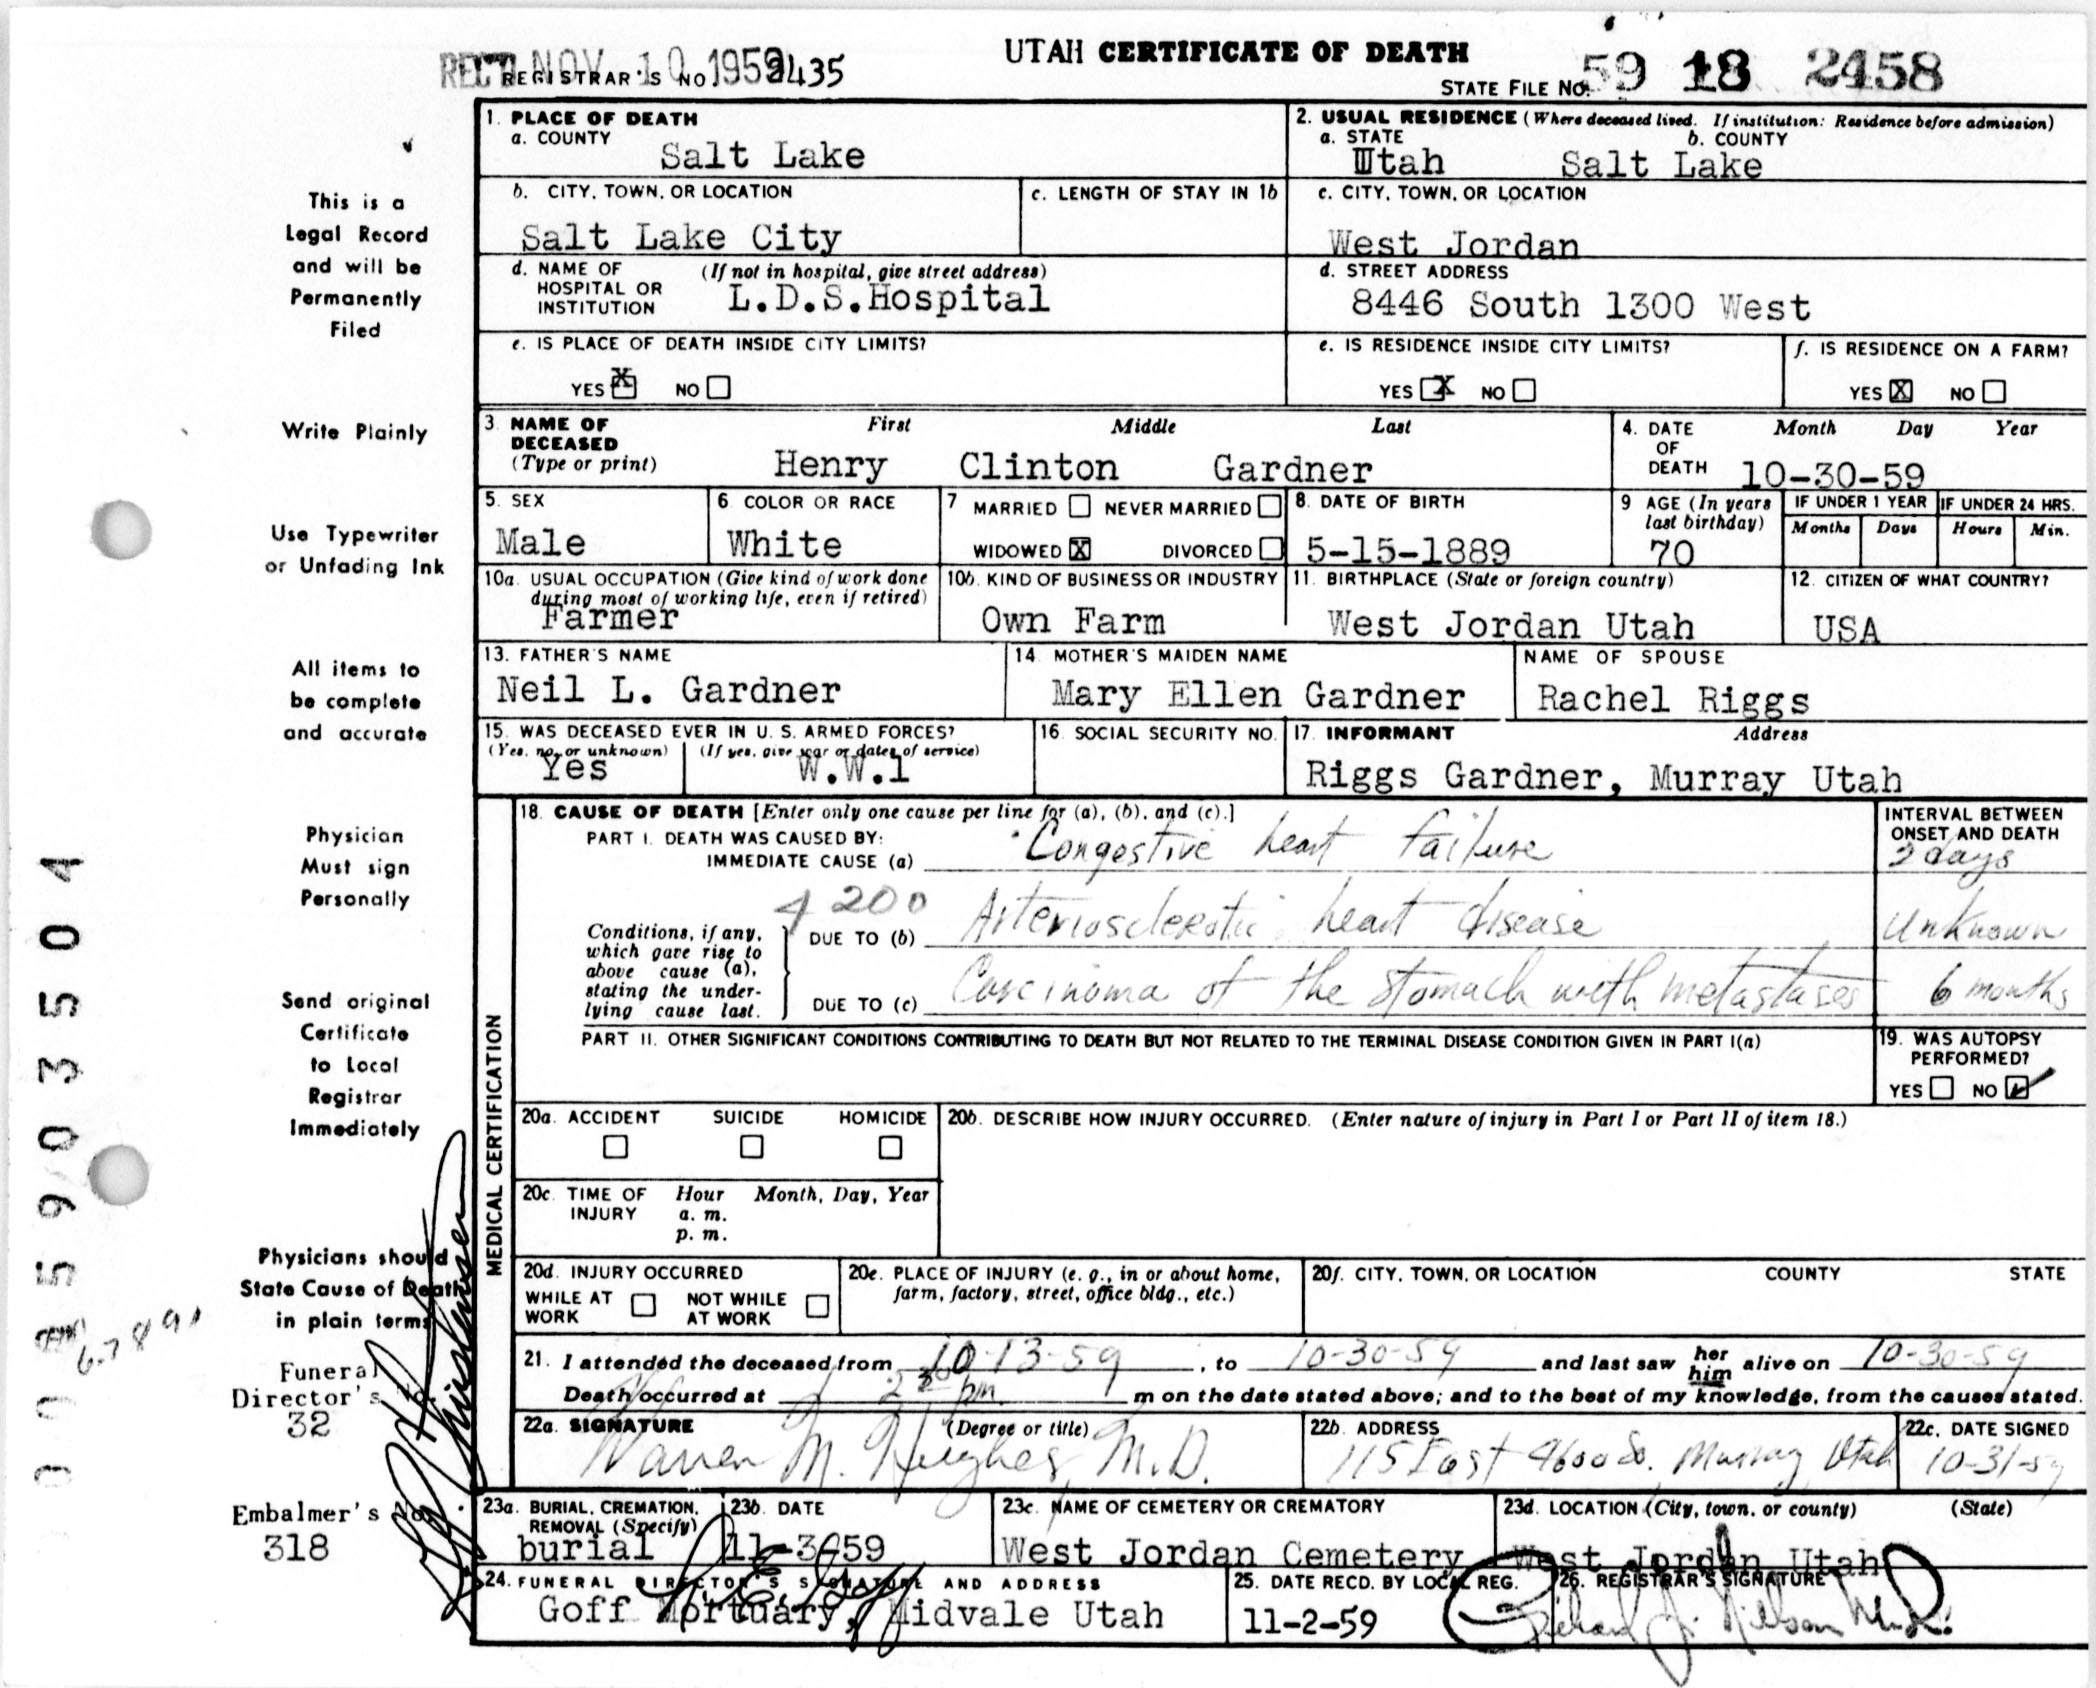 UTAH CERTIFICATE OF DEATH
REC'D NOV 10 1959
REGISTRAR'S NO. 2435
STATE FILE NO. 59 18 2458
1. PLACE OF DEATH
a. COUNTY
Salt Lake
2. USUAL RESIDENCE (Where deceased lived. If institution: Residence before admission)
a. STATE b. COUNTY
Utah Salt Lake
b. CITY, TOWN, OR LOCATION
Salt Lake City
c. LENGTH OF STAY IN 1b
c. CITY, TOWN, OR LOCATION
West Jordan
d. NAME OF HOSPITAL OR INSTITUTION (If not in hospital, give street address)
L.D.S.Hospital
d. STREET ADDRESS
8446 South 1300 West
e. IS PLACE OF DEATH INSIDE CITY LIMITS?
YES X NO
e. IS RESIDENCE INSIDE CITY LIMITS?
YES X NO
f. IS RESIDENCE ON A FARM?
YES X NO
3. NAME OF DECEASED (Type or print)
First Middle Last
Henry Clinton Gardner
4. DATE OF DEATH
Month Day Year
10-30-59
5. SEX
Male
6. COLOR OR RACE
White
7 MARRIED NEVER MARRIED
WIDOWED X DIVORCED
8. DATE OF BIRTH
5-15-1889
9 AGE (In years last birthday)
70
IF UNDER 1 YEAR
Months Days
IF UNDER 24 HRS.
Hours Min.
10a. USUAL OCCUPATION (Give kind of work done during most of working life, even if retired)
Farmer
10b. KIND OF BUSINESS OR INDUSTRY
Own Farm
11. BIRTHPLACE (State or foreign country)
West Jordan Utah
12. CITIZEN OF WHAT COUNTRY?
USA
13. FATHER'S NAME
Neil L. Gardner
14. MOTHER'S MAIDEN NAME
Mary Ellen Gardner
NAME OF SPOUSE
Rachel Riggs
15. WAS DECEASED EVER IN U. S. ARMED FORCES?
(Yes, no, or unknown) (If yes, give war or dates of service)
Yes W.W.1
16. SOCIAL SECURITY NO.
17. INFORMANT Address
Riggs Gardner, Murray Utah
MEDICAL CERTIFICATION
18. CAUSE OF DEATH [Enter only one cause per line for (a), (b), and (c).]
PART I. DEATH WAS CAUSED BY:
IMMEDIATE CAUSE (a) Congestive heart failure
INTERVAL BETWEEN ONSET AND DEATH
2 days
4200
Conditions, if any, which gave rise to above cause (a), stating the underlying cause last.
DUE TO (b) Arteriosclerotic heart disease
Unknown
DUE TO (c) Carcinoma of the stomach with metastases
6 months
PART II. OTHER SIGNIFICANT CONDITIONS CONTRIBUTING TO DEATH BUT NOT RELATED TO THE TERMINAL DISEASE CONDITION GIVEN IN PART I(a)
19. WAS AUTOPSY PERFORMED?
YES NO
20a. ACCIDENT SUICIDE HOMICIDE
20b. DESCRIBE HOW INJURY OCCURRED. (Enter nature of injury in Part I or Part II of item 18.)
20c. TIME OF INJURY Hour Month, Day, Year
a. m.
p. m.
20d. INJURY OCCURRED
WHILE AT WORK NOT WHILE AT WORK
20e. PLACE OF INJURY (e. g., in or about home, farm, factory, street, office bldg., etc.)
20f. CITY, TOWN, OR LOCATION COUNTY STATE
21. I attended the deceased from 10-13-59, to 10-30-59 and last saw her him alive on 10-30-59
Death occurred at 2 pm m on the date stated above; and to the best of my knowledge, from the causes stated.
22a. SIGNATURE (Degree or title)
Warren M. Hughes, M.D.
22b. ADDRESS
115 East 4600 So. Murray Utah
22c. DATE SIGNED
10-31-59
23a. BURIAL, CREMATION, REMOVAL (Specify)
burial
23b. DATE
11-3-59
23c. NAME OF CEMETERY OR CREMATORY
West Jordan Cemetery
23d. LOCATION (City, town, or county) (State)
West Jordan Utah
24. FUNERAL DIRECTOR'S SIGNATURE AND ADDRESS
Goff Mortuary, Midvale Utah
25. DATE RECD. BY LOCAL REG.
11-2-59
26. REGISTRAR'S SIGNATURE
This is a
Legal Record
and will be
Permanently
Filed
Write Plainly
Use Typewriter
or Unfading Ink
All items to
be complete
and accurate
Physician
Must sign
Personally
Send original
Certificate
to Local
Registrar
Immediately
Physicians should
State Cause of Death
in plain terms
Funeral
Director's No.
32
Embalmer's No.
318